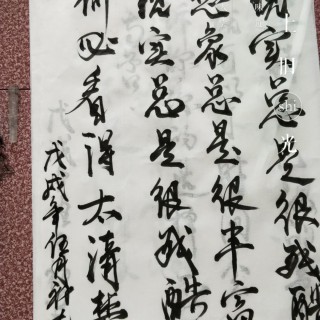 现实总是很残酷
想象总是很丰富
现实总是很残酷
何必看得太清楚
戊戌年
shi
光